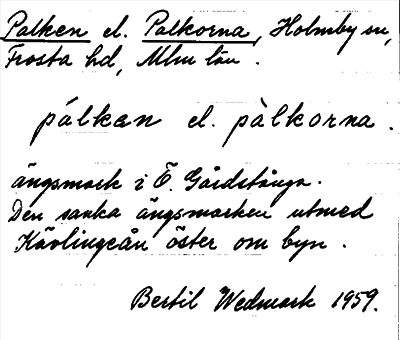 Palken el. Palkorna, Holmby sn,
Frosta hd, Mlm län.
pálkan el. pàlkorna.
ängsmark i Ö. Gårdstånga.
Den sanka ängsmarken utmed
Kävlingeån öster om byn.
Bertil Wedmark 1959.